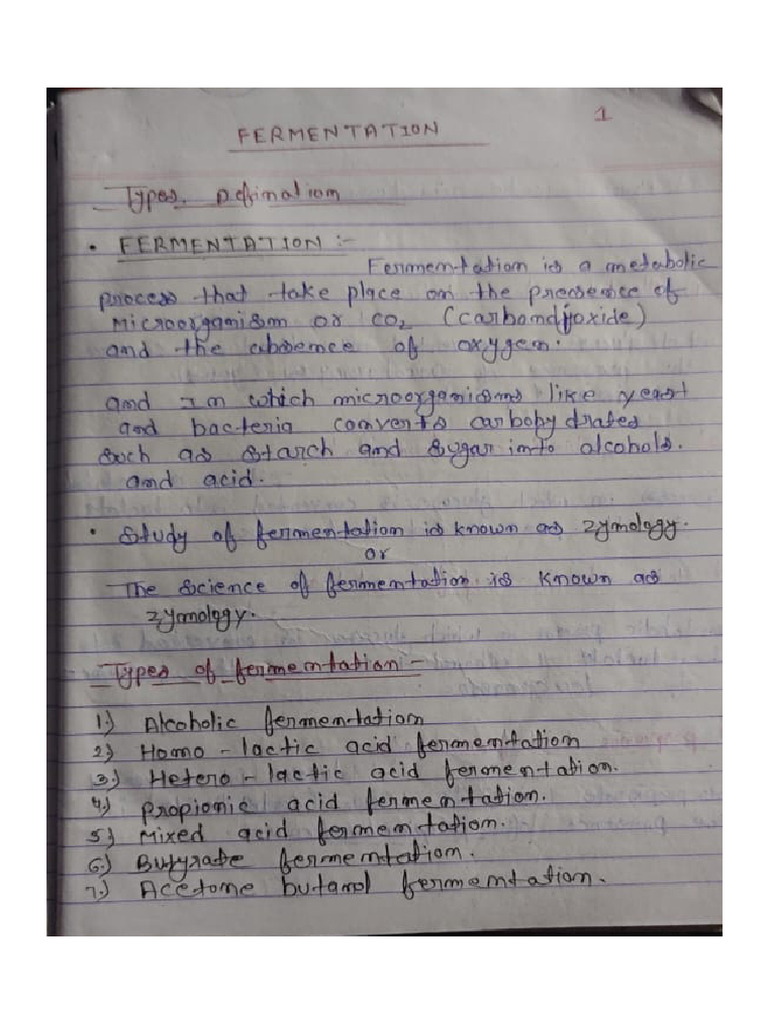 1
FERMENTATION
Types, Defination
• FERMENTATION :-
Fermentation is a metabolic
process that take place on the presence of
Microorganism or CO2 (carbondioxide)
and the absence of oxygen.
and In which microorganisms like yeast
and bacteria converts carbohydrates
such as starch and sugar into alcohols.
and acid.
• Study of fermentation is known as zymology.
or
The science of fermentation is known as
zymology.
Types of fermentation -
1.) Alcoholic fermentation
2.) Homo - lactic acid fermentation
3.) Hetero - lactic acid fermentation.
4.) Propionic acid fermentation.
5.) Mixed acid fermentation.
6.) Butyrate fermentation.
7.) Acetone butanol fermentation.